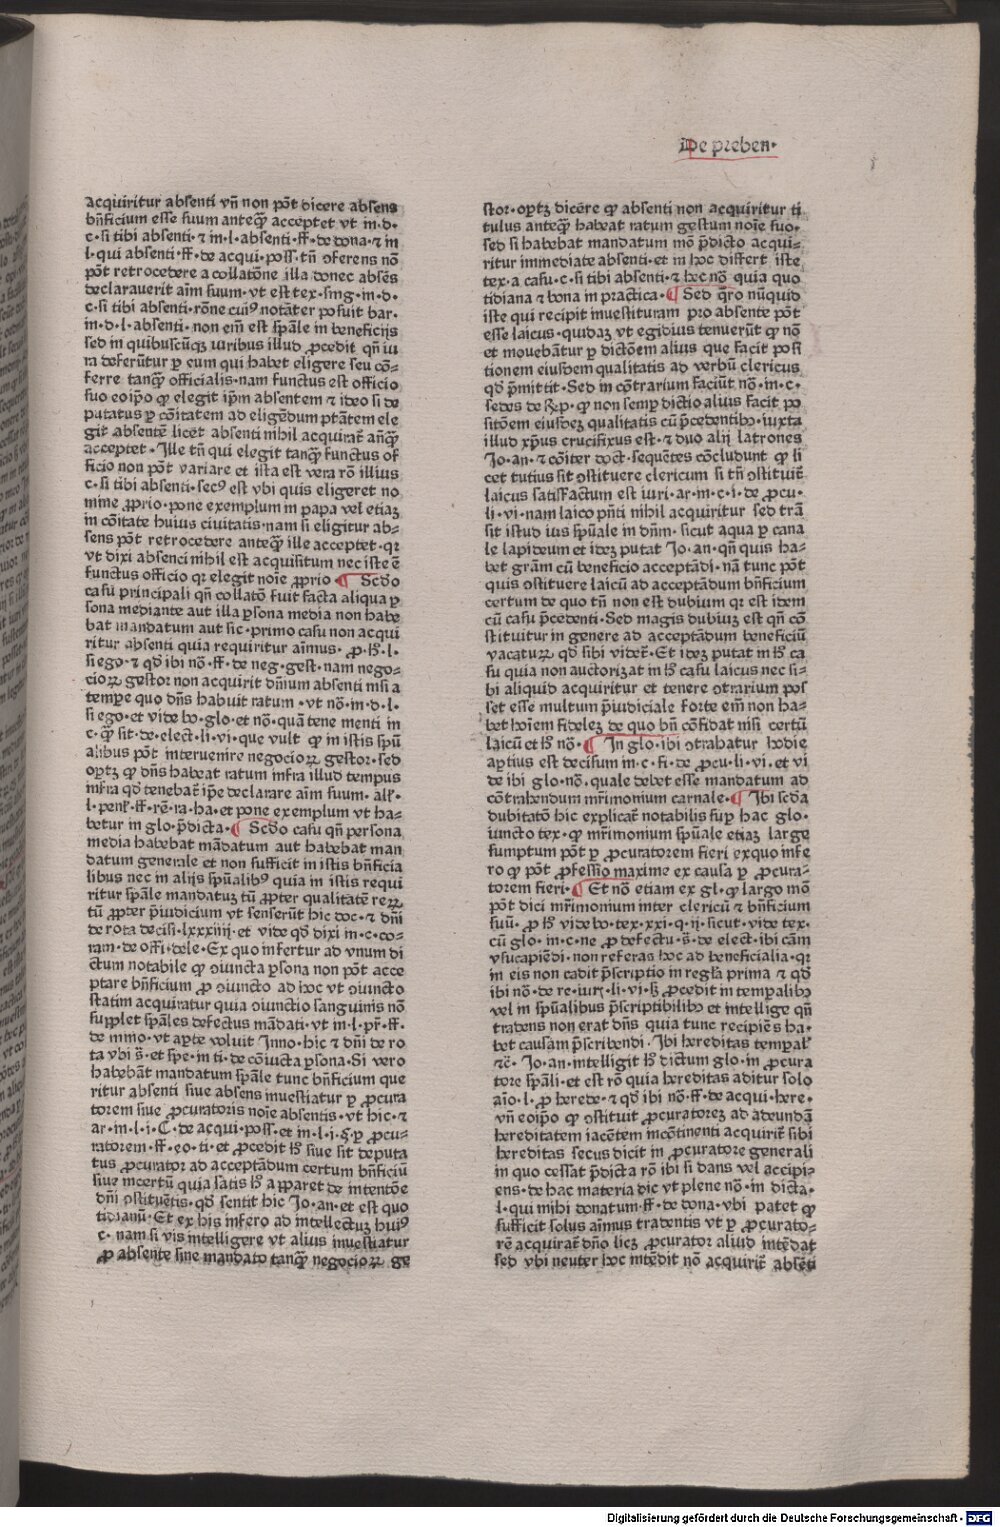 De preben·
acquiritur absenti vñ non põt dicere absens
bñficium esse suum anteq̃ꝫ acceptet vt ·m·d·
c·si tibi absenti·⁊ in·l·absenti·ff·de dona·⁊ in
l·qui absenti·ff·de acqui·poss·tñ oferens nõ
põt retrocedere a collatõne illa donec absẽs
declarauerit aĩm suum·vt est tex·sing·in·d·
c·si tibi absenti·rõne cuiꝰ notãter posuit bar·
in·d·l·absenti·non em̃ est sp̃ale in beneficijs
sed in quibuscũqꝫ iuribus illud ꝓcedit qñ iu
ra deferũtur ꝑ eum qui habet eligere seu cõ-
ferre tanq̃ꝫ officialis·nam functus est officio
suo eoip̃o ꝙ elegit ip̃m absentem ⁊ ideo si de
putatus ꝑ cõitatem ad eligẽdum ptãtem ele
git absentẽ licet absenti nihil acquirat̃ añq̃ꝫ
acceptet·Ille tñ qui elegit tanq̃ꝫ functus of
ficio non põt variare et ista est vera rõ illius
c·si tibi absenti·secꝰ est vbi quis eligeret no
mine ꝓprio·pone exemplum in papa vel etiaꝫ
in cõitate huius ciuitatis·nam si eligitur ab-
sens põt retrocedere anteq̃ꝫ ille acceptet·qꝛ
vt dixi absenci nihil est acquisitum nec iste ẽ
functus officio qꝛ elegit noĩe ꝓprio ¶ Scd̃o
casu principali qñ collatõ fuit facta aliqua ꝑ
sona mediante aut illa ꝑsona media non habe
bat mandatum aut sic·primo casu non acqui
ritur absenti quia requiritur aĩmus·ꝓ hõ·l·
si ego·⁊ qd̃ ibi nõ·ff·de neg·gest·nam nego-
cioꝝ gestor non acquirit dñium absenti nisi a
tempe quo dñs habuit ratum·vt nõ·in·d·l·
si ego·et vide bo·glo·et nõ·quã tene menti in
c·q̃ꝫ sit·de·elect·li·vi·que vult ꝙ in istis sp̃u
alibus põt interuenire negocioꝝ gestor·sed
oꝑtꝫ ꝙ dñs habeat ratum infra illud tempus
infra qd̃ tenebat̃ ip̃e declarare aĩm suum·alꝭ·
l·penꝭ·ff·rẽ·ra·ha·et pone exemplum vt ha-
betur in glo·p̃dicta·¶ Scd̃o casu qñ persona
media habebat mãdatum aut habebat man
datum generale et non sufficit in istis bñficia
libus nec in alijs sp̃ualibꝰ quia in istis requi
ritur sp̃ale mandatuꝫ tũ ꝓpter qualitatẽ reꝝ
tũ ꝓpter p̃iudicium vt senserũt hic doc·⁊ dñi
de rota decisi·lxxxiiij·et vide qd̃ dixi in·c·co-
ram·de offi·dele·Ex quo infertur ad vnum di
ctum notabile ꝙ ꝯiuncta ꝑsona non põt acce
ptare bñficium ꝓ ꝯiuncto ad hoc vt ꝯiuncto
statim acquiratur quia ꝯiunctio sanguinis nõ
supplet sp̃ales defectus mãdati·vt in·l·pr̃·ff·
de mino·vt aꝑte voluit Inno·hic ⁊ dñi de ro
ta vbi s̃·et spe·in ti·de cõiucta ꝑsona·Si vero
habebãt mandatum sp̃ale tunc bñficium que
ritur absenti siue absens inuestiatur ꝑ ꝓcura
torem siue ꝓcuratoris noĩe absentis·vt hic·⁊
ar·in·l·i·C·de acqui·poss·et in·l·i·§·ꝑ ꝓcu-
ratorem·ff·eo·ti·et ꝓcedit hõ siue sit deputa
tus ꝓcurator ad acceptãdum certum bñficiũ
siue incertũ quia satis hõ apparet de intentõe
dñi ꝯstituẽtis·qd̃ sentit hic Jo·an·et est quo
tidianũ·Et ex his infero ad intellectuꝫ huiꝰ
c·nam si vis intelligere vt alius inuestiatur
ꝓ absente sine mandato tanq̃ꝫ negocioꝝ ge
stor·oꝑtꝫ dicẽre ꝙ absenti non acquiritur ti
tulus anteq̃ꝫ habeat ratum gestum noĩe suo·
sed si habebat mandatum mõ p̃dicto acqui-
ritur immediate absenti·et in hoc differt iste
tex·a casu·c·si tibi absenti·⁊ hec nõ quia quo
tidiana ⁊ bona in practica·¶ Sed q̃ro nũquid
iste qui recipit inuestituram pro absente põt
esse laicus·quidaꝫ vt egidius tenuerũt ꝙ nõ
et mouebãtur ꝑ dictõem alius que facit posi
tionem eiusdem qualitatis ad verbũ clericus
qd̃ p̃mittit·Sed in cõtrarium faciũt nõ·in·c·
sedes de rescrip·ꝙ non semꝑ dictio alius facit po
sitõem eiusdeꝫ qualitatis cũ p̃cedentibꝰ·iuxta
illud xp̃us crucifixus est·⁊ duo alij latrones
Jo·an·⁊ cõiter doct·sequẽtes cõcludunt ꝙ li
cet tutius sit ꝯstituere clericum si tñ ꝯstituit̃
laicus satisfactum est iuri·ar·in·c·i·de ꝓcu·
li·vi·nam laico p̃nti nihil acquiritur sed trã
sit istud ius sp̃uale in dñm·sicut aqua ꝑ cana
le lapideum et ideꝫ putat Jo·an·qñ quis ha-
bet gram̃ cũ beneficio acceptãdi·nã tunc põt
quis ꝯstituere laicũ ad acceptãdum bñficium
certum de quo tñ non est dubium qꝛ est idem
cũ casu p̃cedenti·Sed magis dubiuꝫ est qñ cõ
stituitur in genere ad acceptãdum beneficiũ
vacaturꝝ qd̃ sibi videt̃·Et ideꝫ putat in hõ ca
su quia non auctorizat in hõ casu laicus nec si-
bi aliquid acquiritur et tenere ꝯtrarium pos
set esse multum p̃iudiciale forte em̃ non ha-
bet hoĩem fideleꝫ de quo bñ cõfidat nisi certũ
laicũ et hõ nõ·¶ In glo·ibi ꝯtrabatur hodie
aꝑtius est decisum in·c·fi·de ꝓcu·li·vi·et vi
de ibi glo·nõ·quale debet esse mandatum ad
cõtrahendum mr̃imonium carnale·¶ Ibi scd̃a
dubitatõ hic explicat̃ notabilis suꝑ hac glo·
iuncto tex·ꝙ mr̃imonium sp̃uale etiaꝫ large
sumptum põt ꝑ ꝓcuratorem fieri exquo infe
ro ꝙ põt ꝓfessio maxime ex causa ꝑ ꝓcura-
torem fieri·¶ Et nõ etiam ex gl·ꝙ largo mõ
põt dici mr̃imonium inter clericũ ⁊ bñficium
suũ·ꝓ hõ vide bo·tex·xxi·q·ij·sicut·vide tex·
cũ glo·in·c·ne ꝓ defectu·s̃·de elect·ibi cãm
vsucapiẽdi·non referas hoc ad beneficialia·qꝛ
in eis non cadit p̃scriptio in regl̃a prima ⁊ qd̃
ibi nõ·de re·iur·li·vi·sꝫ ꝓcedit in temꝑalibꝰ
vel in sp̃ualibus p̃scriptibilibꝰ et intellige qñ
tradens non erat dñs quia tunc recipiẽs ha-
bet causam p̃scribendi·Ibi hereditas tempaꝉ
⁊c̃·Jo·an·intelligit hõ dictum glo·in ꝓcura
tore sp̃ali·et est rõ quia hereditas aditur solo
aĩo·l·ꝓ herede·⁊ qd̃ ibi nõ·ff·de acqui·here·
vñ eoip̃o ꝙ ꝯstituit ꝓcuratoreꝫ ad adeundã
hereditatem iacẽtem incõtinenti acquirit̃ sibi
hereditas secus dicit in ꝓcuratore generali
in quo cessat p̃dicta rõ ibi si dans vel accipi-
ens·de hac materia dic vt plene nõ·in dicta·
l·qui mihi donatum·ff·de dona·vbi patet ꝙ
sufficit solus aĩmus tradentis vt ꝑ ꝓcurato-
rẽ acquirat̃ dño licꝫ ꝓcurator aliud intẽdat
sed vbi neuter hoc intẽdit nõ acquirit̃ absẽti
Digitalisierung gefördert durch die Deutsche Forschungsgemeinschaft - DFG